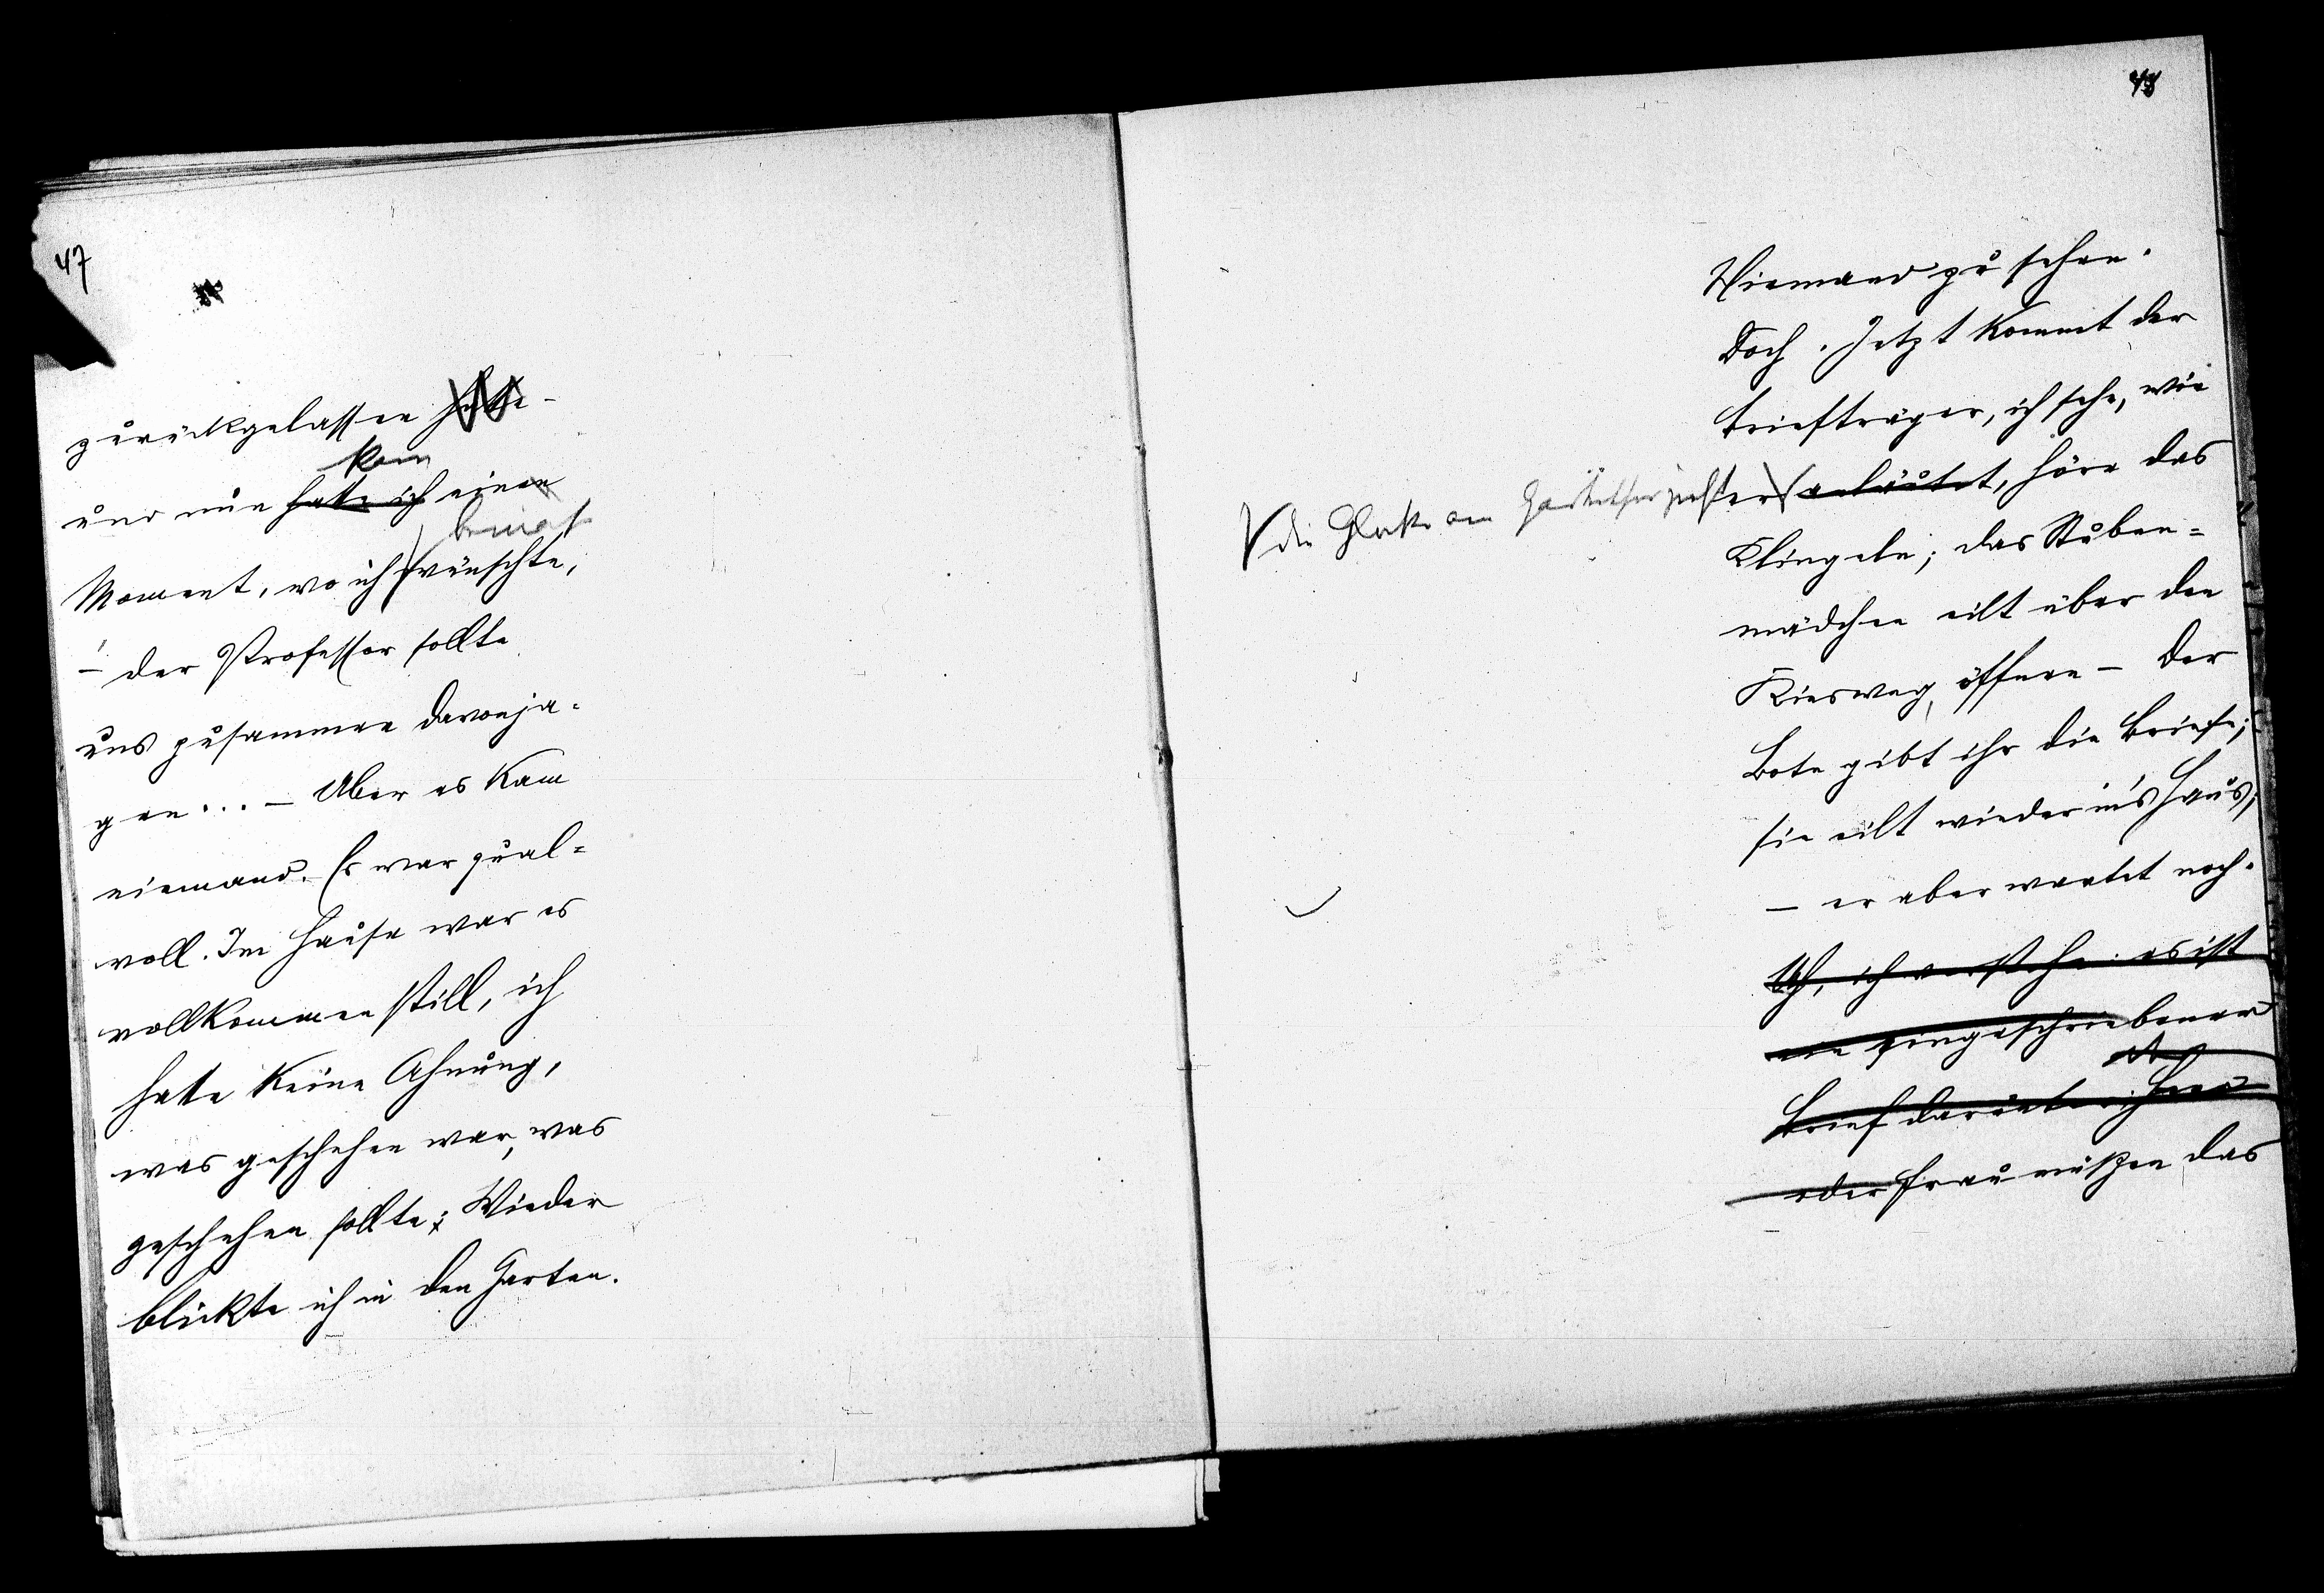 47
zurückgelassen hatte –
kam
und nun hatte ich einen
beinah
Moment, wo ich wünschte,
– der Professor sollte
uns zusammen davonja-
gen... – Aber es kam
niemand. Es war qual=
voll. Im Hause war es
vollkommen still, ich
hatte keine Ahnung,
was geschehen war, was
geschehen sollte; Wieder
blickte ich in den Garten.
48
Niemand zu sehen.
Doch. Jetzt kommt der
Briefträger, ich sehe, wie
er anläutet, höre das
die Glocke am zieht
Klingeln; das Stuben=
mädchen eilt über den
Kiesweg, öffnen – der
Bote gibt ihr die Briefe;
sie eilt wieder in's Haus;
– er aber wartet noch.
Ah, ich verstehe: es ist
ein eingeschriebener
Brief darunter; Herr
oder Frau müßen das